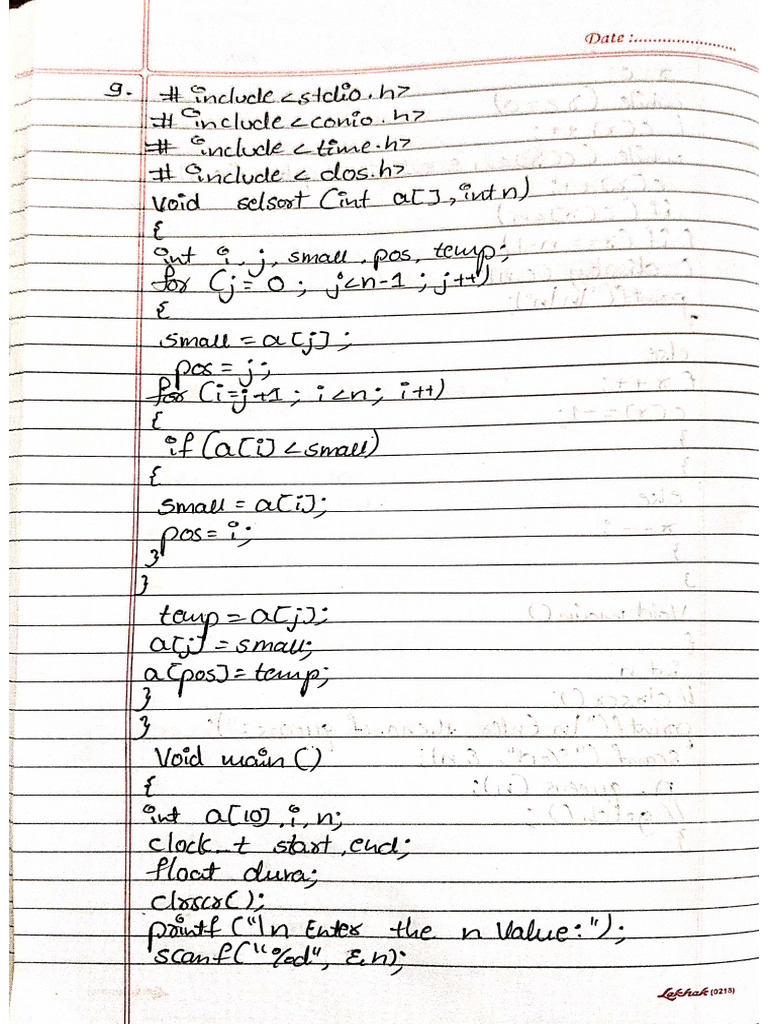 Date :........................
9. # include <stdio.h>
# include <conio.h>
# include < time.h>
# include < dos.h>
void selsort (int a[], int n)
{
int i, j, small, pos, temp;
for (j = 0 ; j<n-1 ; j++)
{
small = a[j];
pos = j;
for (i=j+1 ; i<n; i++)
{
if (a[i] < small)
{
small = a[i];
pos = i;
}
}
temp = a[j];
a[j] = small;
a[pos] = temp;
}
}
Void main ()
{
int a[10], i, n;
clock_t start, end;
float dura;
clrscr();
printf ("\n Enter the n Value:");
scanf ("%d", &n);
Lekhak (0218)